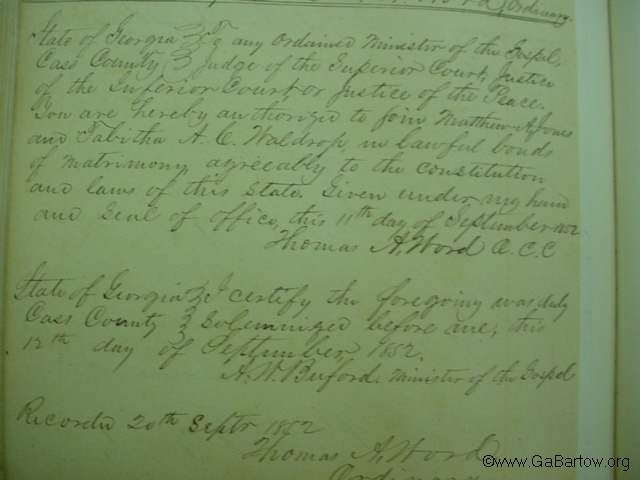 Ordinary.
State of Georgia } To any Ordained Minister of the Gospel,
Cass County } Judge of the Superior Court, Justice
of the Inferior Court or Justice of the Peace.
You are hereby authorized to join Matthew A Jones
and Tabitha A. C. Waldrop, in lawful bonds
of matrimony, agreeably to the constitution
and laws of this State. Given under my hand
and Seal of office, this 11th day of September 1852
Thomas A. Word O.C.C
State of Georgia } I certify the foregoing was duly
Cass County } Solemnized before me, this
12th day of September, 1852.
A. W. Buford. Minister of the Gospel
Recorded 20th Septr 1852
Thomas A. Word
Ordinary
©www.GaBartow.org